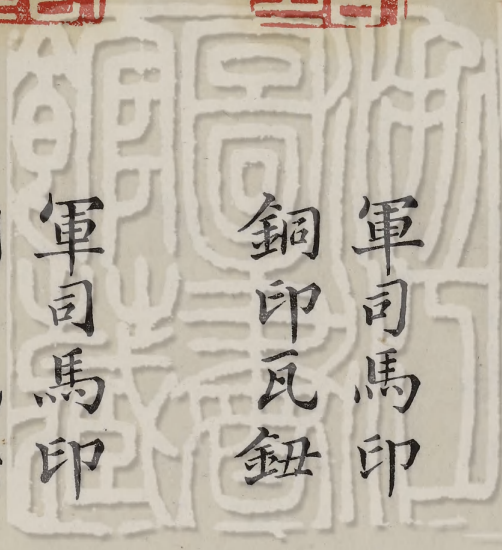 軍司馬印
銅印瓦鈕
軍司馬印